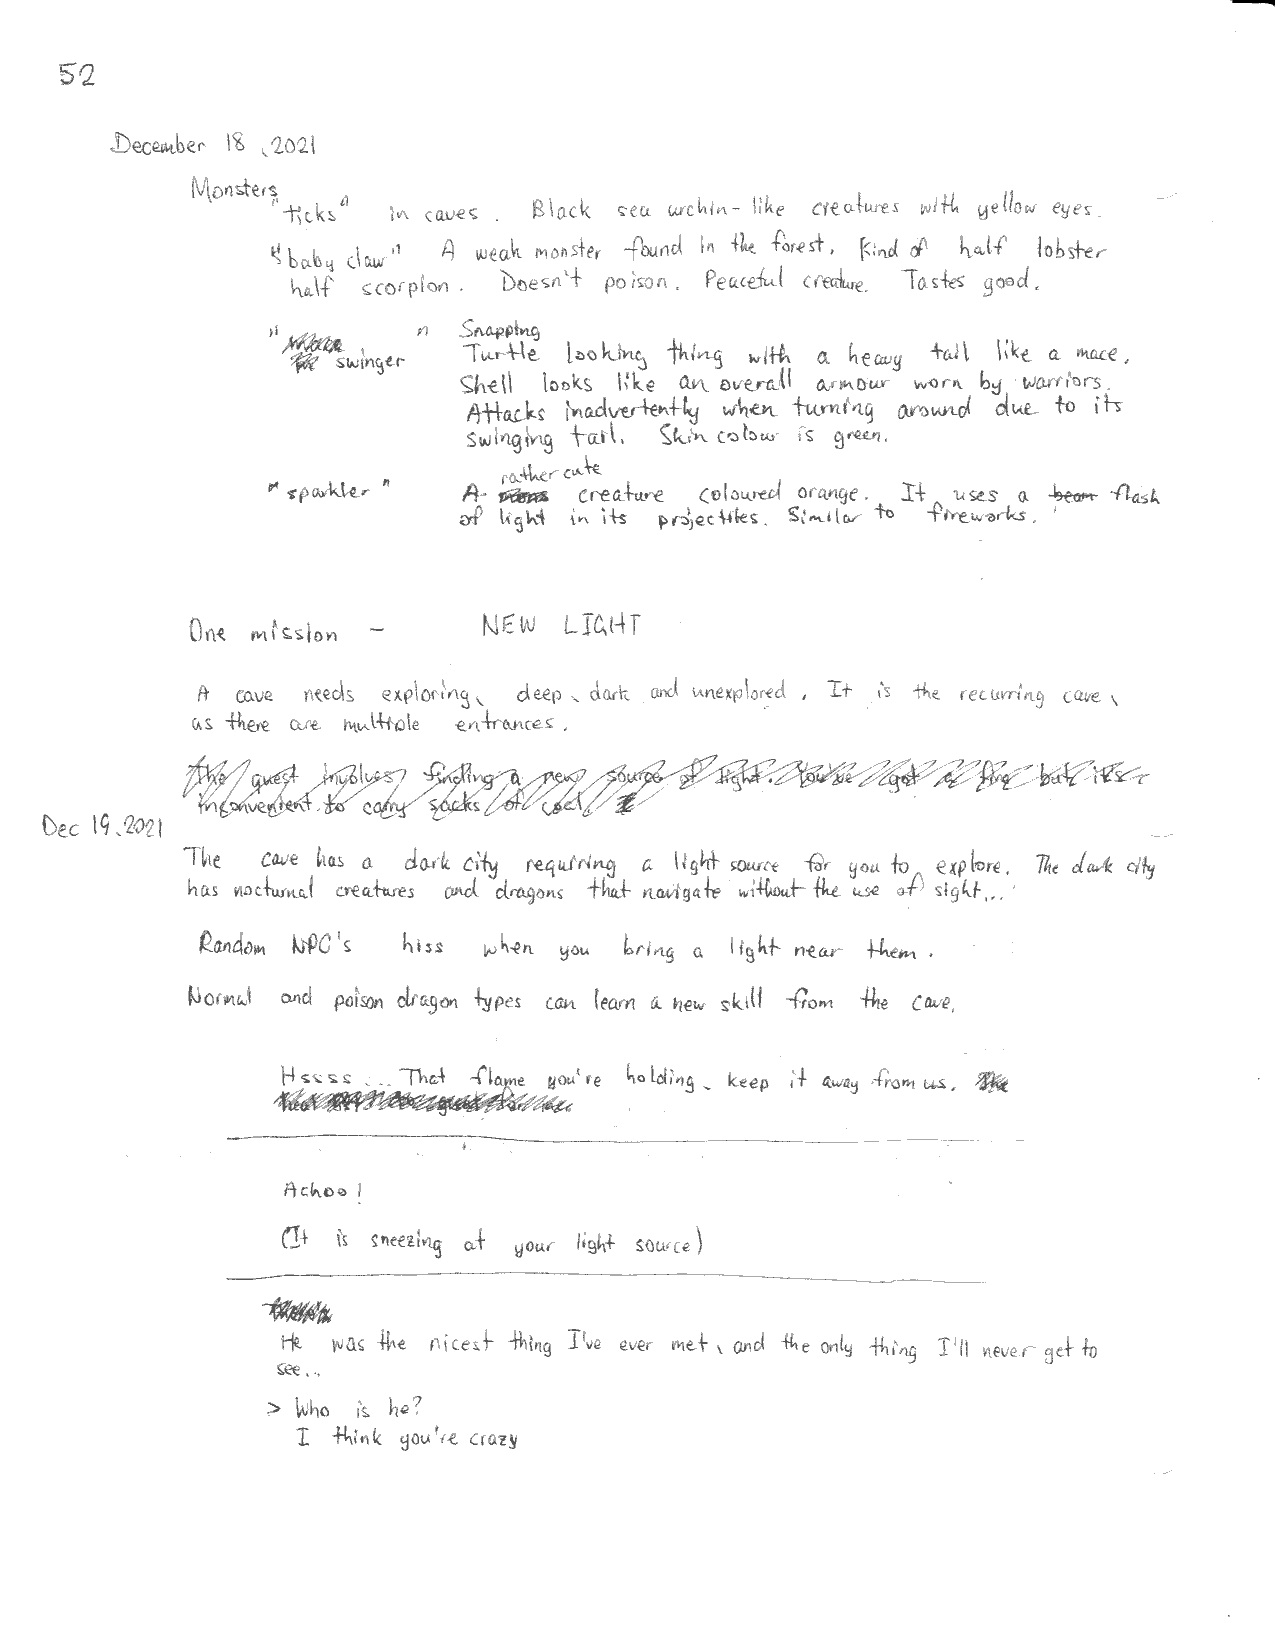 52
December 18, 2021
Monsters
"ticks" in caves. Black sea urchin-like creatures with yellow eyes.
"baby claw" A weak monster found in the forest. Kind of half lobster
half scorpion. Doesn't poison. Peaceful creature. Tastes good.
" swinger " Snapping
Turtle looking thing with a heavy tail like a mace.
Shell looks like an overall armour worn by warriors.
Attacks inadvertently when turning around due to its
swinging tail. Skin colour is green.
rather cute
"sparkler" A creature coloured orange. It uses a beam flash
of light in its projectiles. Similar to fireworks.
One mission - NEW LIGHT
A cave needs exploring, deep, dark and unexplored. It is the recurring cave,
as there are multiple entrances.
The quest involves finding a new source of light. You've got a fire but it's
inconvenient to carry sacks of coal.
Dec 19, 2021
The cave has a dark city requiring a light source for you to explore. The dark city
has nocturnal creatures and dragons that navigate without the use of sight...
Random NPC's hiss when you bring a light near them.
Normal and poison dragon types can learn a new skill from the cave.
Hssss .... That flame you're holding, keep it away from us. The
Achoo!
(It is sneezing at your light source)
He was the nicest thing I've ever met, and the only thing I'll never get to
see...
> Who is he?
I think you're crazy